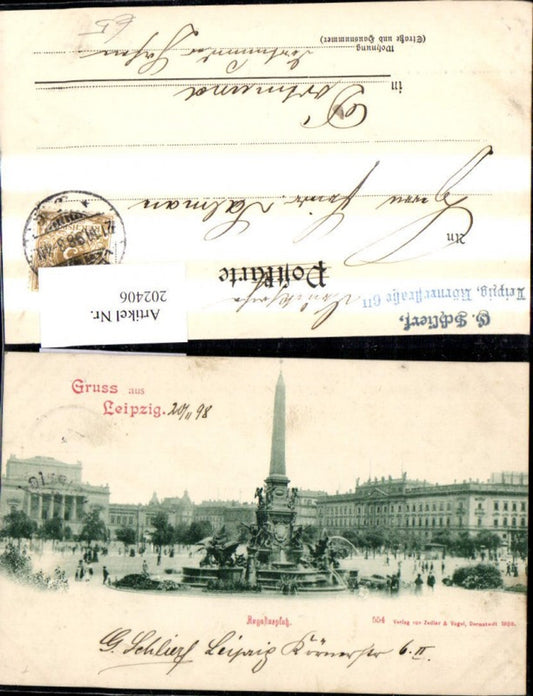 65
Postkarte
G. Schlierf,
Leipzig, Körnerstraße 6II
An Herrn Salman
in Dortmund
Wohnung
(Straße und Hausnummer)
Artikel Nr.
202406
Gruss aus
Leipzig. 20/11 98
Augustusplatz.
554 Verlag von Zedler & Vogel, Darmstadt 1898.
G. Schlierf Leipzig Körnerstr 6.II